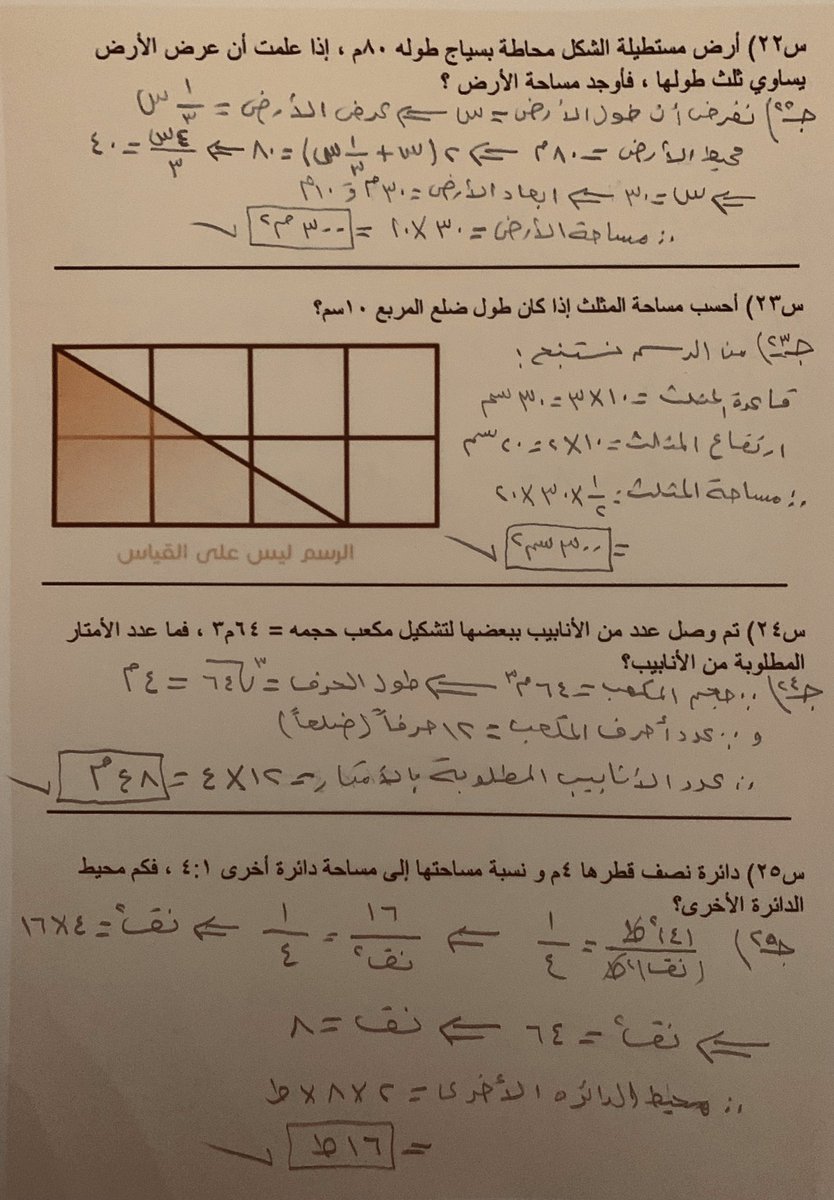 س٢٢) أرض مستطيلة الشكل محاطة بسياج طوله ٨٠م ، إذا علمت أن عرض الأرض
يساوي ثلث طولها ، فأوجد مساحة الأرض ؟
جـ٢٢) نفرض أن طول الأرض = س ⇐ عرض الأرض = ١/٣ س
محيط الأرض = ٨٠م ⇐ ٢(س + ١/٣ س) = ٨٠ ⇐ ٤س/٣ = ٤٠
⇐ س = ٣٠ ⇐ ابعاد الأرض = ٣٠م و ١٠م
∴ مساحة الأرض = ٣٠ × ١٠ = ٣٠٠م٢
س٢٣) أحسب مساحة المثلث إذا كان طول ضلع المربع ١٠سم؟
جـ٢٣) من الرسم نستنتج :
قاعدة المثلث = ١٠×٣ = ٣٠ سم
ارتفاع المثلث = ١٠×٢ = ٢٠ سم
∴ مساحة المثلث = ١/٢ × ٣٠ × ٢٠
= ٣٠٠ سم٢
الرسم ليس على القياس
س٢٤) تم وصل عدد من الأنابيب ببعضها لتشكيل مكعب حجمه = ٦٤م٣ ، فما عدد الأمتار
المطلوبة من الأنابيب؟
جـ٢٤) ∵ حجم المكعب = ٦٤م٣ ⇐ طول الحرف = ٣√٦٤ = ٤م
و ∵ عدد أحرف المكعب = ١٢ حرفاً (ضلعاً)
∴ عدد الأنابيب المطلوبة بالأمتار = ١٢ × ٤ = ٤٨م
س٢٥) دائرة نصف قطرها ٤م و نسبة مساحتها إلى مساحة دائرة أخرى ٤:١ ، فكم محيط
الدائرة الأخرى؟
جـ٢٥) (٤)٢ط/(نق)٢ط = ١/٤ ⇐ ١٦/نق٢ = ١/٤ ⇐ نق٢ = ٤×١٦
⇐ نق٢ = ٦٤ ⇐ نق = ٨
∴ محيط الدائره الأخرى = ٢ × ٨ × ط
= ١٦ط